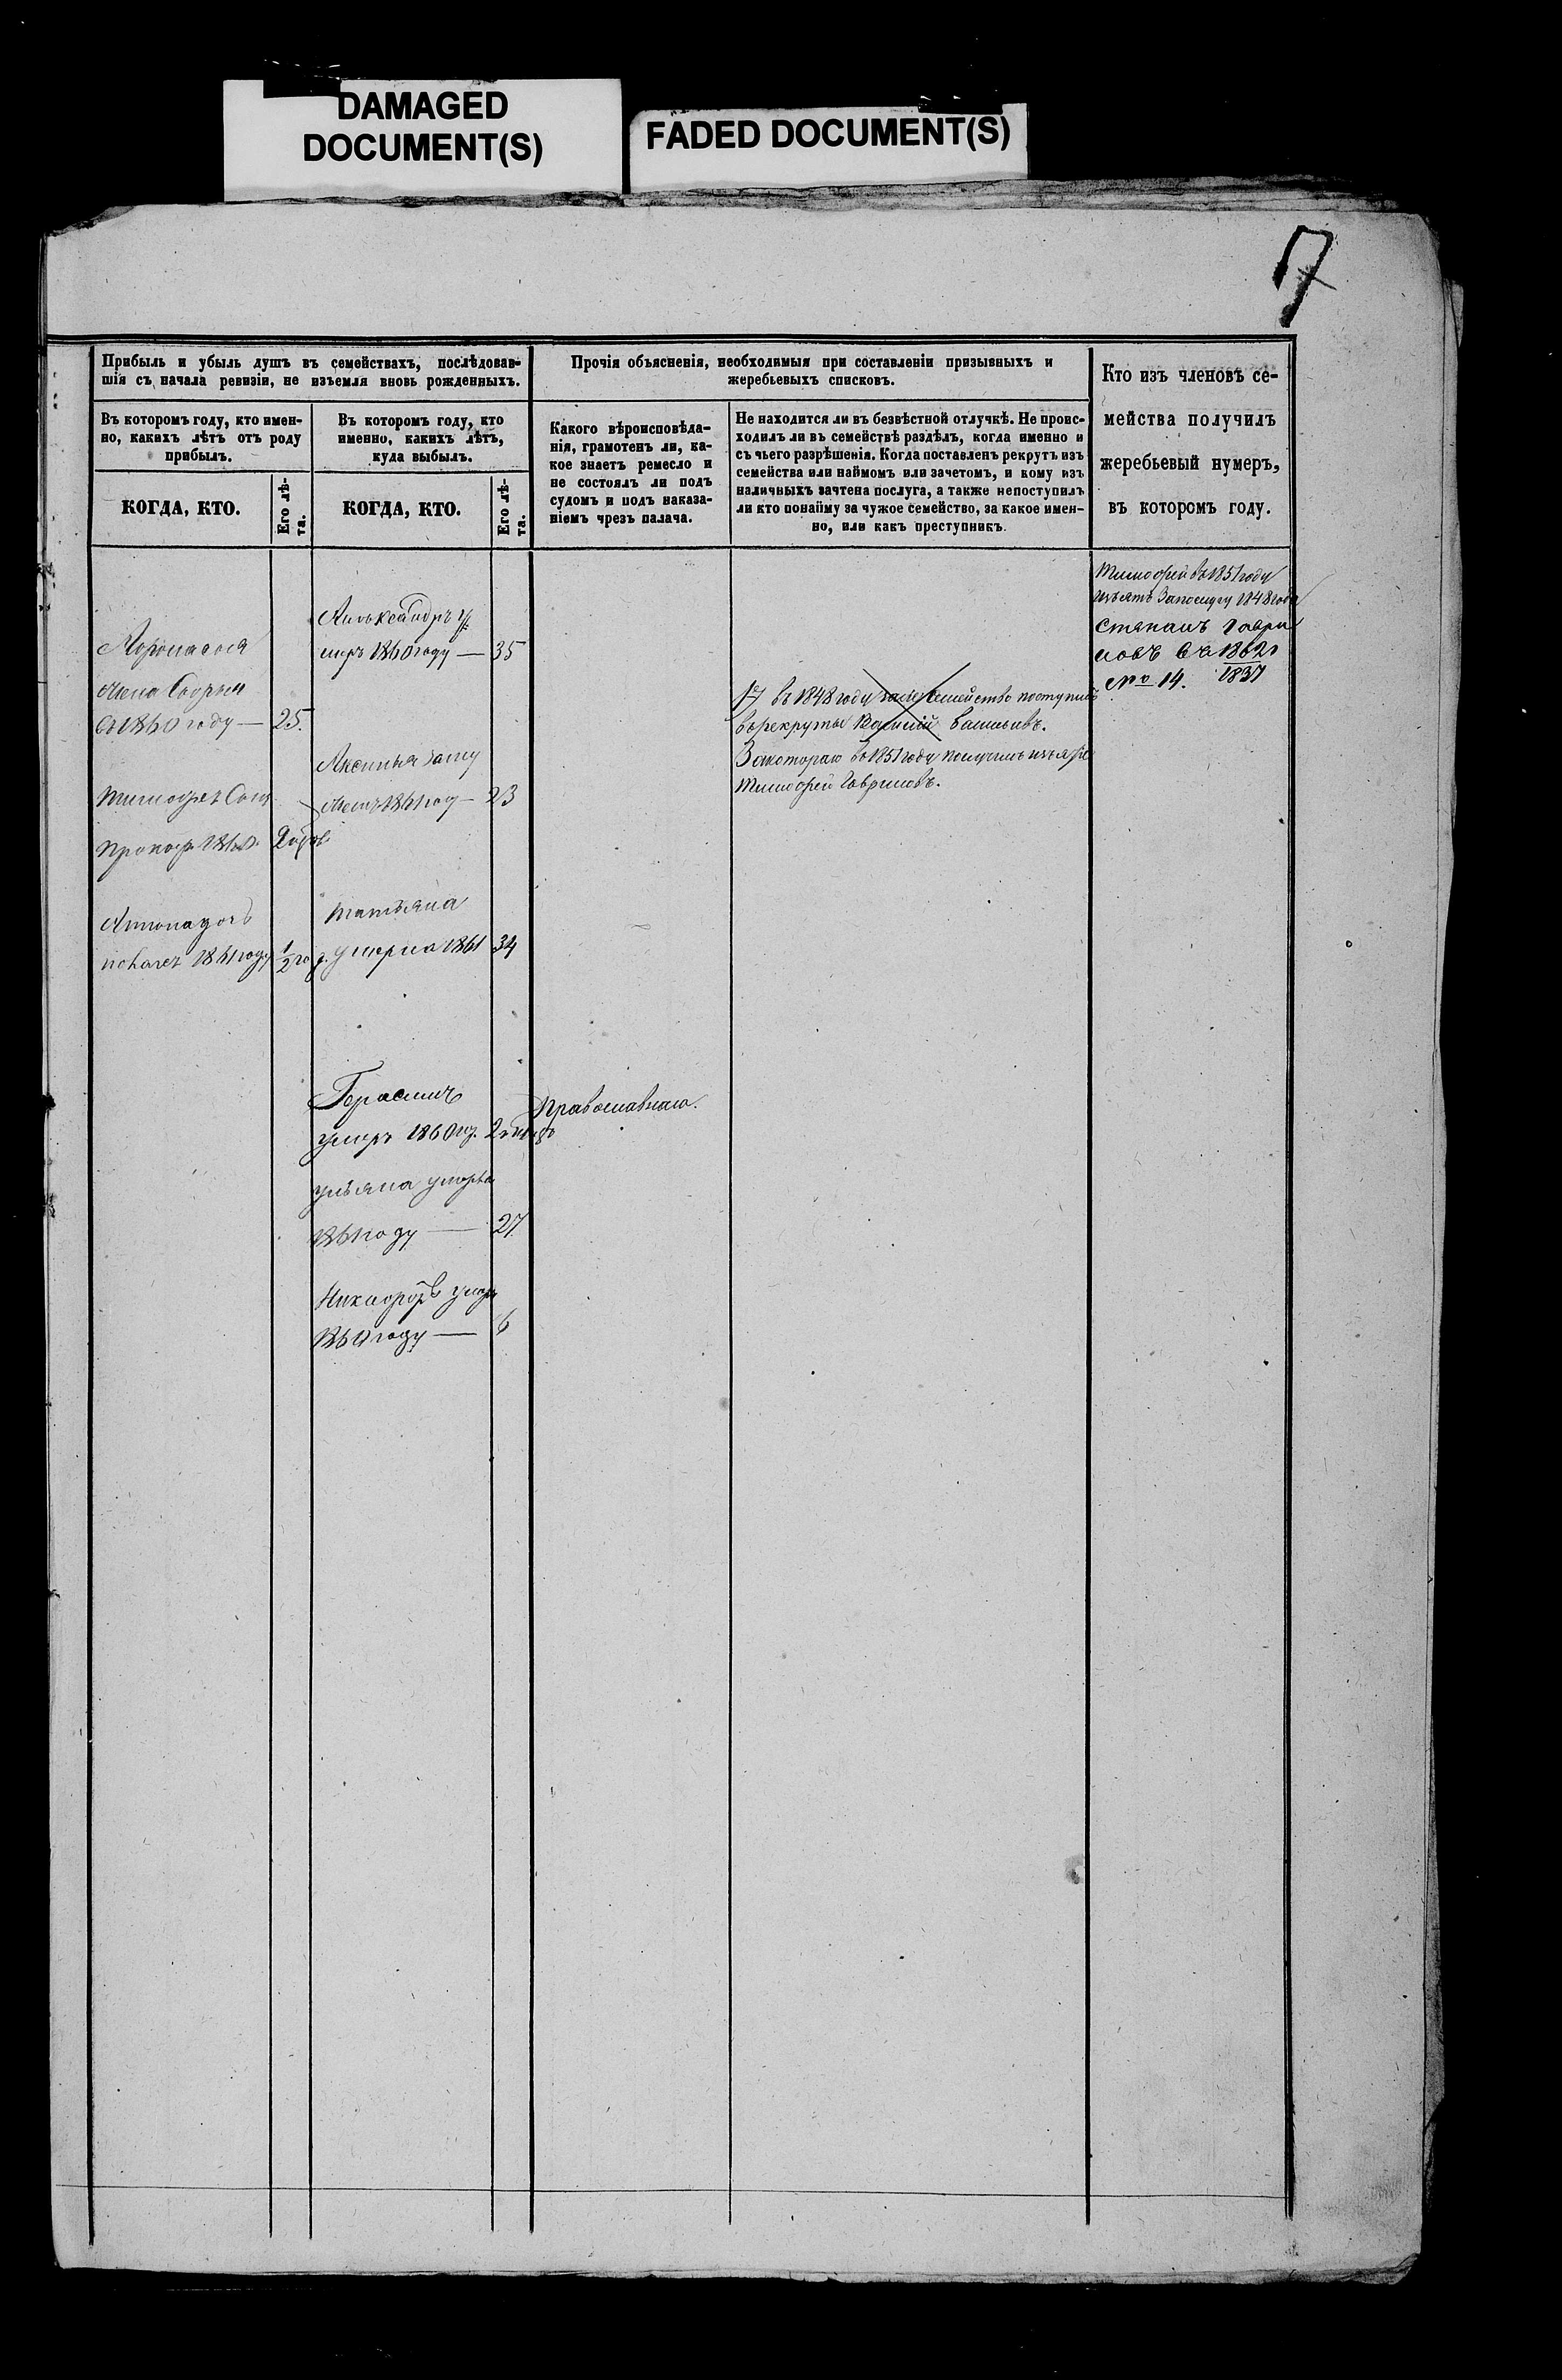 DAMAGED
DOCUMENT(S)
FADED DOCUMENT(S)
7
Прибыль и убыль душъ въ семействахъ, послѣдовав-
шія съ начала ревизіи, не изъемля вновь рожденныхъ.
Въ которомъ году, кто имен-
но, какихъ лѣтъ отъ роду
прибылъ.
КОГДА, КТО.
Его лѣ-
та.
Въ которомъ году, кто
именно, какихъ лѣтъ,
куда выбылъ.
КОГДА, КТО.
Его лѣ-
та.
Прочія объясненія, необходимыя при составленіи призывныхъ и
жеребьевыхъ списковъ.
Какого вѣроисповѣда-
нія, грамотенъ ли, ка-
кое знаетъ ремесло и
не состоялъ ли подъ
судомъ и подъ наказа-
ніемъ чрезъ палача.
Не находится ли въ безвѣстной отлучкѣ. Не проис-
ходилъ ли въ семействѣ раздѣлъ, когда именно и
съ чьего разрѣшенія. Когда поставленъ рекрутъ изъ
семейства или наймомъ или зачетомъ, и кому изъ
наличныхъ зачтена послуга, а также непоступилъ
ли кто понайму за чужое семейство, за какое имен-
но, или какъ преступникъ.
Кто изъ членовъ се-
мейства получилъ
жеребьевый нумеръ,
въ которомъ году.
жена
1860 году — 25.
Тимофея Сынъ
Прокоф
1861 году 1/2 го
Александръ у
меръ 1860 году — 35
Аксинья замужъ
1861 году — 23
Татьяна
умерла 1861 34
Герасимъ
умеръ 1860 г. 2
Ульяна умерла
1861 году — 27
Никифоръ умеръ
1860 году — 6
Православнаго.
17 въ 1848 году за семейство поступилъ
въ рекруты Василій Васильевъ.
За котораго въ 1851 году получилъ изъятіе
Тимофей Гавриловъ.
Тимофей въ 1851 году
изъятъ за послугу 1848 года
Степанъ Гаври
ловъ въ 1862 г
№ 14. 1837